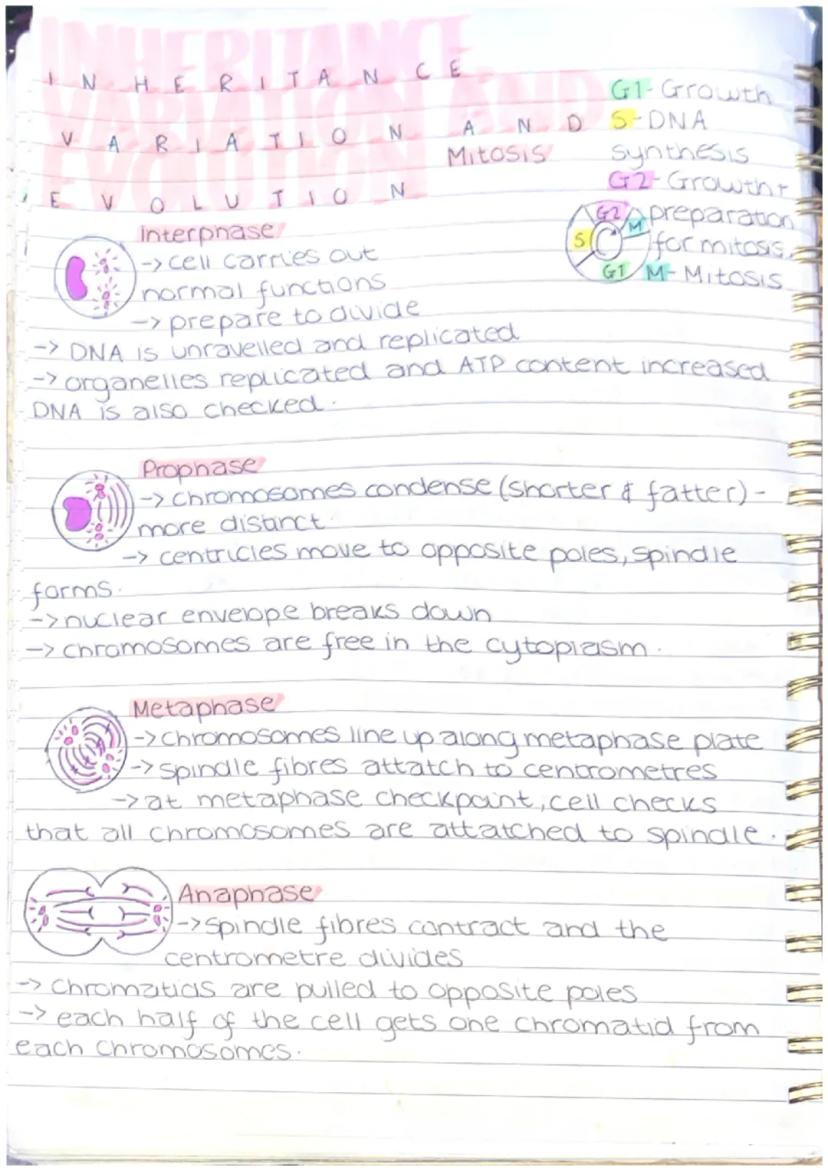 INHERITANCE
VARIATION AND
EVOLUTION
INHERITANCE
VARIATION AND
EVOLUTION
Mitosis
G1 - Growth
S - DNA
synthesis
G2 - Growth +
preparation
for mitosis.
M - Mitosis
G2
M
S
C
G1
Interphase
-> cell carries out
normal functions
-> prepare to divide
-> DNA is unravelled and replicated
-> organelles replicated and ATP content increased
DNA is also checked.
Prophase
-> chromosomes condense (shorter & fatter) -
more distinct.
-> centricles move to opposite poles, spindle
forms.
-> nuclear envelope breaks down
-> chromosomes are free in the cytoplasm.
Metaphase
-> chromosomes line up along metaphase plate
-> spindle fibres attatch to centrometres
-> at metaphase checkpoint, cell checks
that all chromosomes are attatched to spindle.
Anaphase
-> spindle fibres contract and the
centrometre divides
-> chromatids are pulled to opposite poles
-> each half of the cell gets one chromatid from
each chromosomes.